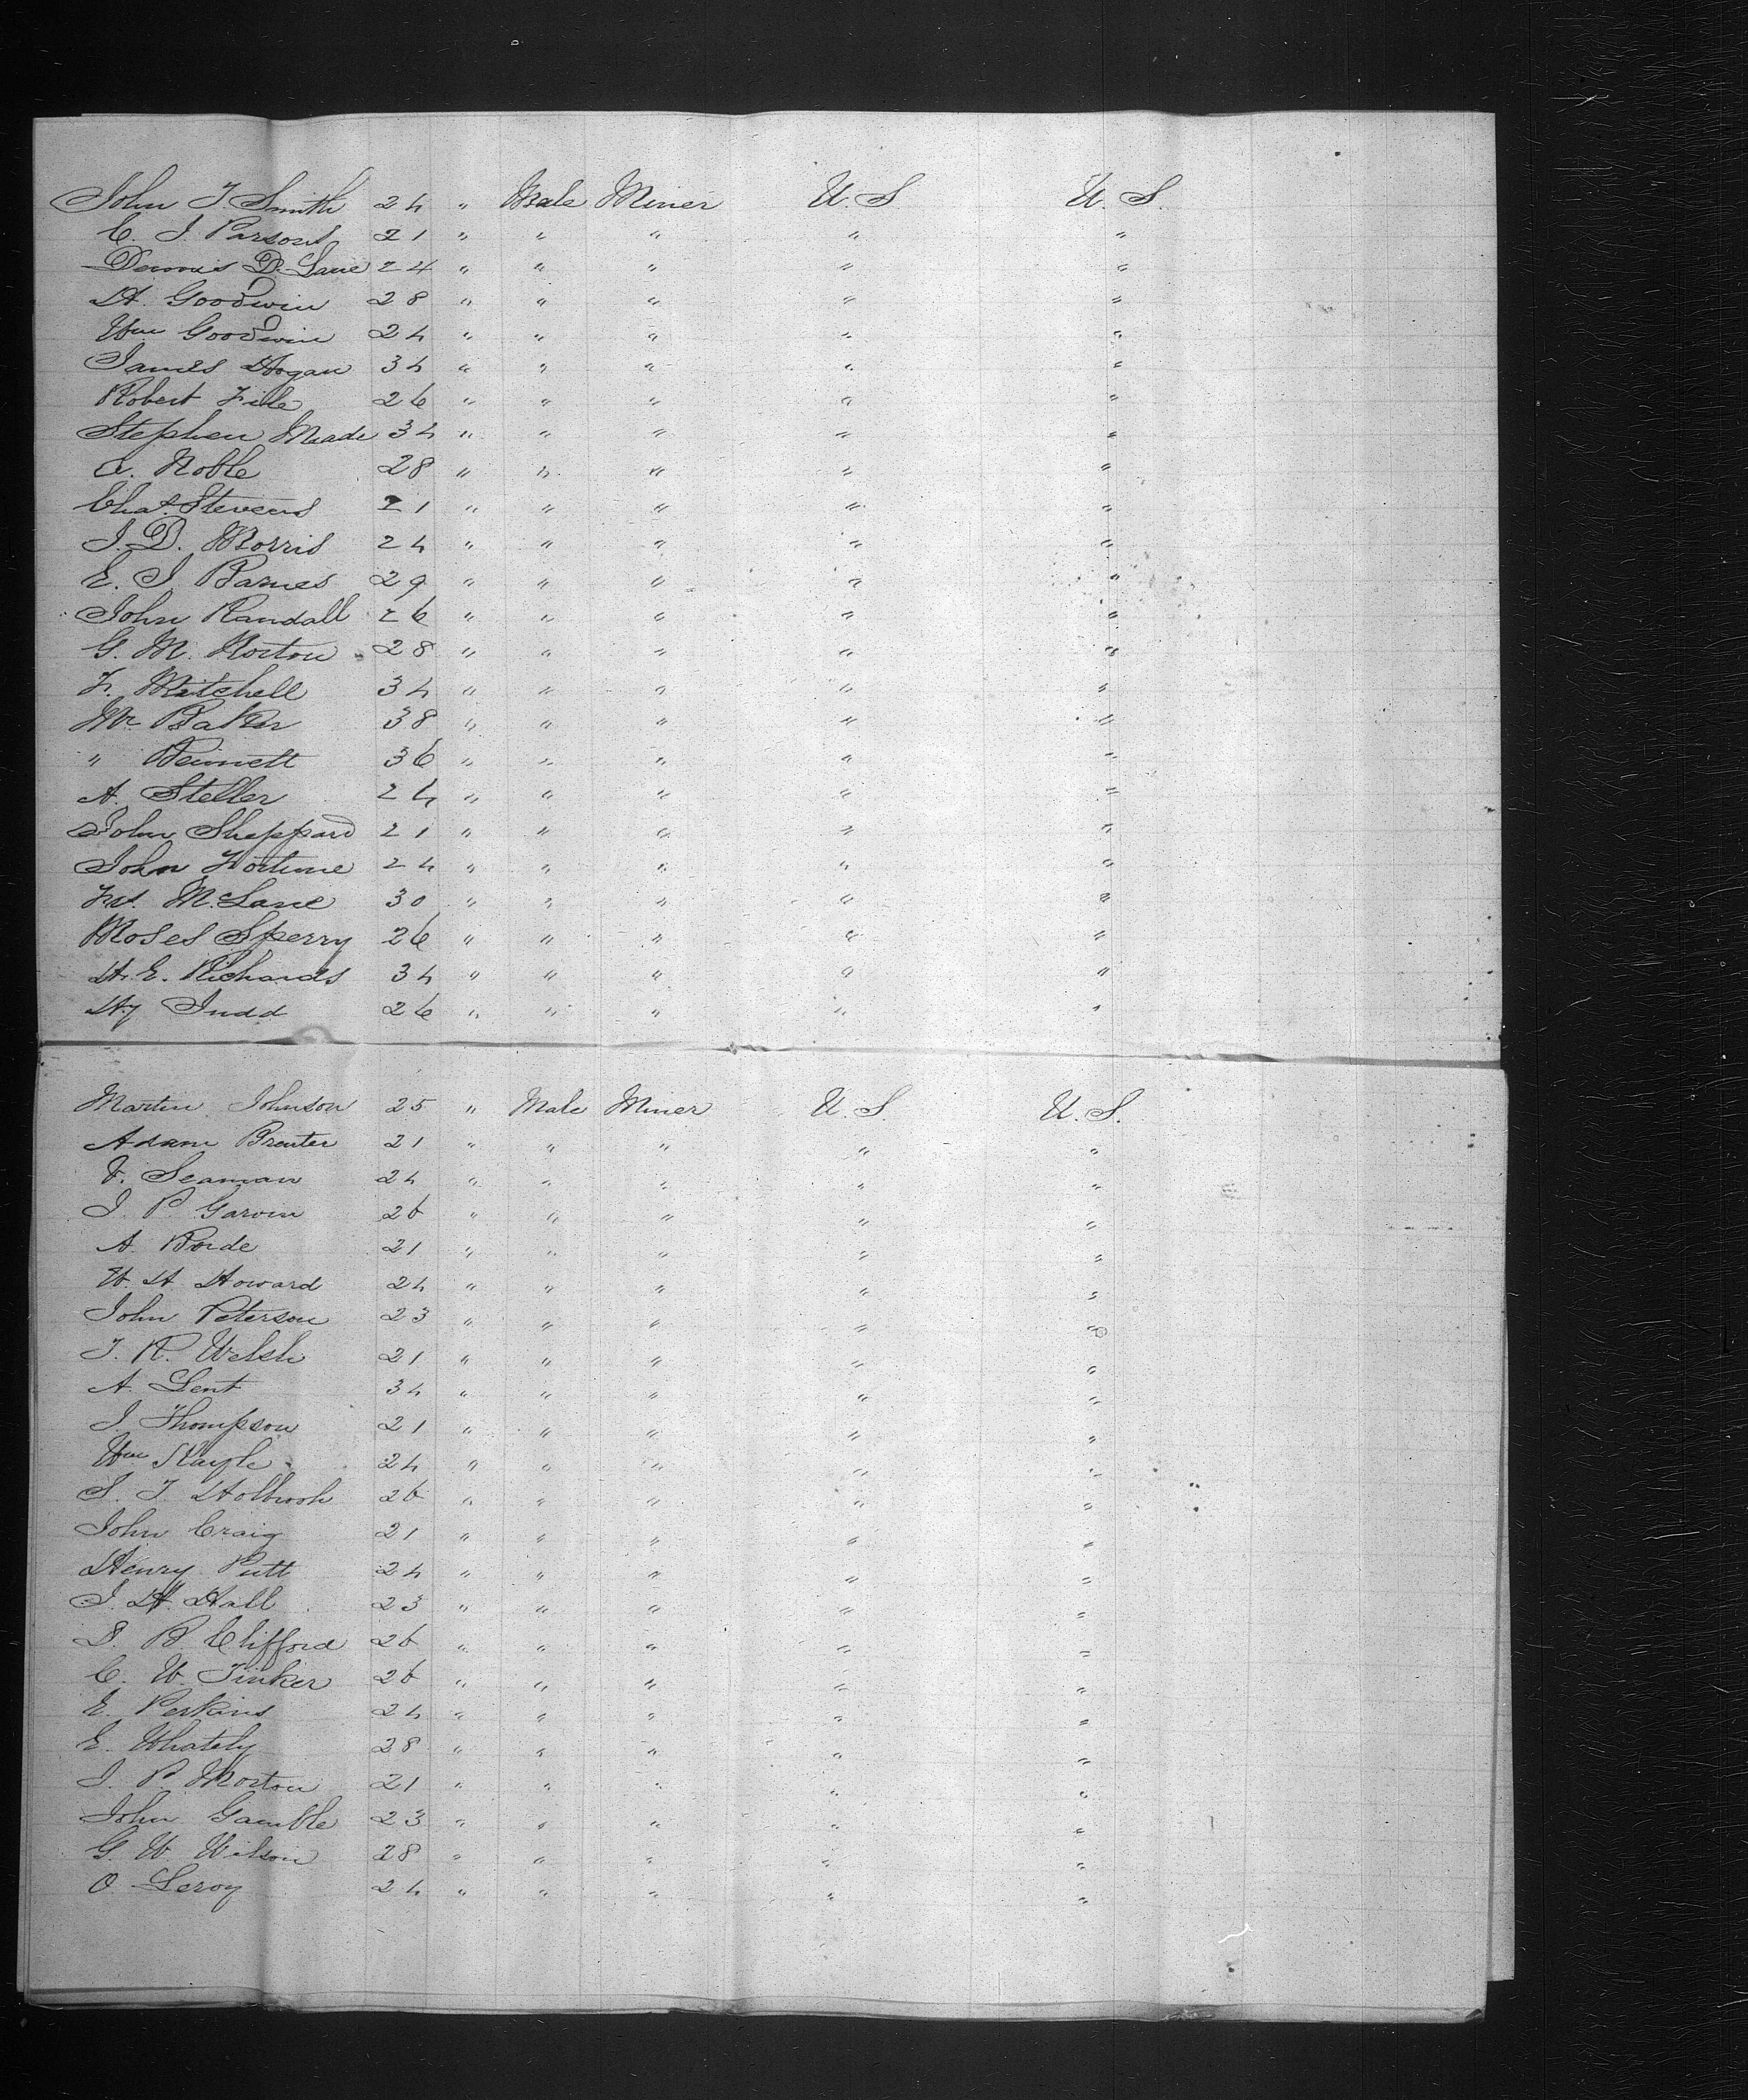 John T. Smith 24 " Male Miner U.S U.S.
C. J. Parsons 21 " " " " "
Dennis D. Lane 24 " " " " "
H. Goodwin 28 " " " " "
Wm Goodwin 24 " " " " "
James Hogan 34 " " " " "
Robert 26 " " " " "
Stephen Meade 34 " " " " "
A. Noble 28 " " " " "
Chas. Stevens 21 " " " " "
J. D. Morris 24 " " " " "
E. J. Barnes 29 " " " " "
John Randall 26 " " " " "
G. M. Norton 28 " " " " "
F. Mitchell 34 " " " " "
Mr Baker 38 " " " " "
" Bennett 36 " " " " "
A. Steller 24 " " " " "
John Sheppard 21 " " " " "
John Fortune 24 " " " " "
M. Lane 30 " " " " "
Moses Sperry 26 " " " " "
H. E. Richards 34 " " " " "
Hy Judd 26 " " " " "
Martin Johnson 25 " Male Miner U.S. U.S.
Adam 21 " " " " "
V. Seaman 24 " " " " "
J. P. Garvin 26 " " " " "
A. 21 " " " " "
W. H. Howard 24 " " " " "
John Peterson 23 " " " " "
T. R. Welsh 21 " " " " "
A. Lent 34 " " " " "
J. Thompson 21 " " " " "
Wm 24 " " " " "
S. T. Holbrook 26 " " " " "
John Craig 21 " " " " "
Henry Putt 24 " " " " "
J. H. Hall 23 " " " " "
D. B. Clifford 26 " " " " "
C. W. Tinker 26 " " " " "
E. Perkins 24 " " " " "
E. Whately 28 " " " " "
J. P. Morton 21 " " " " "
John Gamble 23 " " " " "
G. W. Wilson 28 " " " " "
O Leroy 24 " " " " "